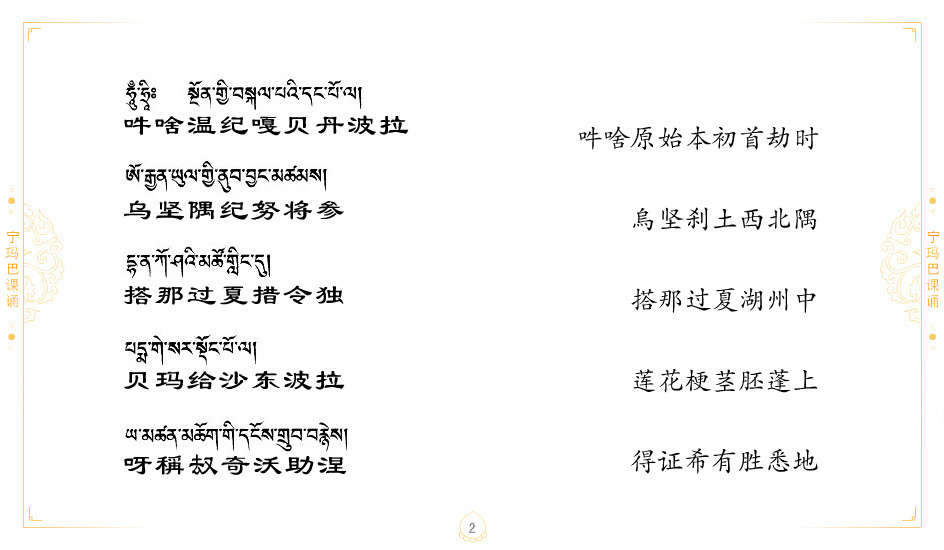 ཧཱུྃ་ཧྲཱིཿ སྔོན་གྱི་བསྐལ་པའི་དང་པོ་ལ།
吽啥温纪嘎贝丹波拉
吽啥原始本初首劫时
ཨོ་རྒྱན་ཡུལ་གྱི་ནུབ་བྱང་མཚམས།
乌坚隅纪努将参
烏坚刹土西北隅
དྷ་ན་ཀོ་ཤའི་མཚོ་གླིང་དུ།
搭那过夏措令独
搭那过夏湖州中
པདྨ་གེ་སར་སྡོང་པོ་ལ།
贝玛给沙东波拉
莲花梗茎胚蓬上
ཡ་མཚན་མཆོག་གི་དངོས་གྲུབ་བརྙེས།
呀稱敖奇沃助涅
得证希有胜悉地
宁玛巴课诵
宁玛巴课诵
2